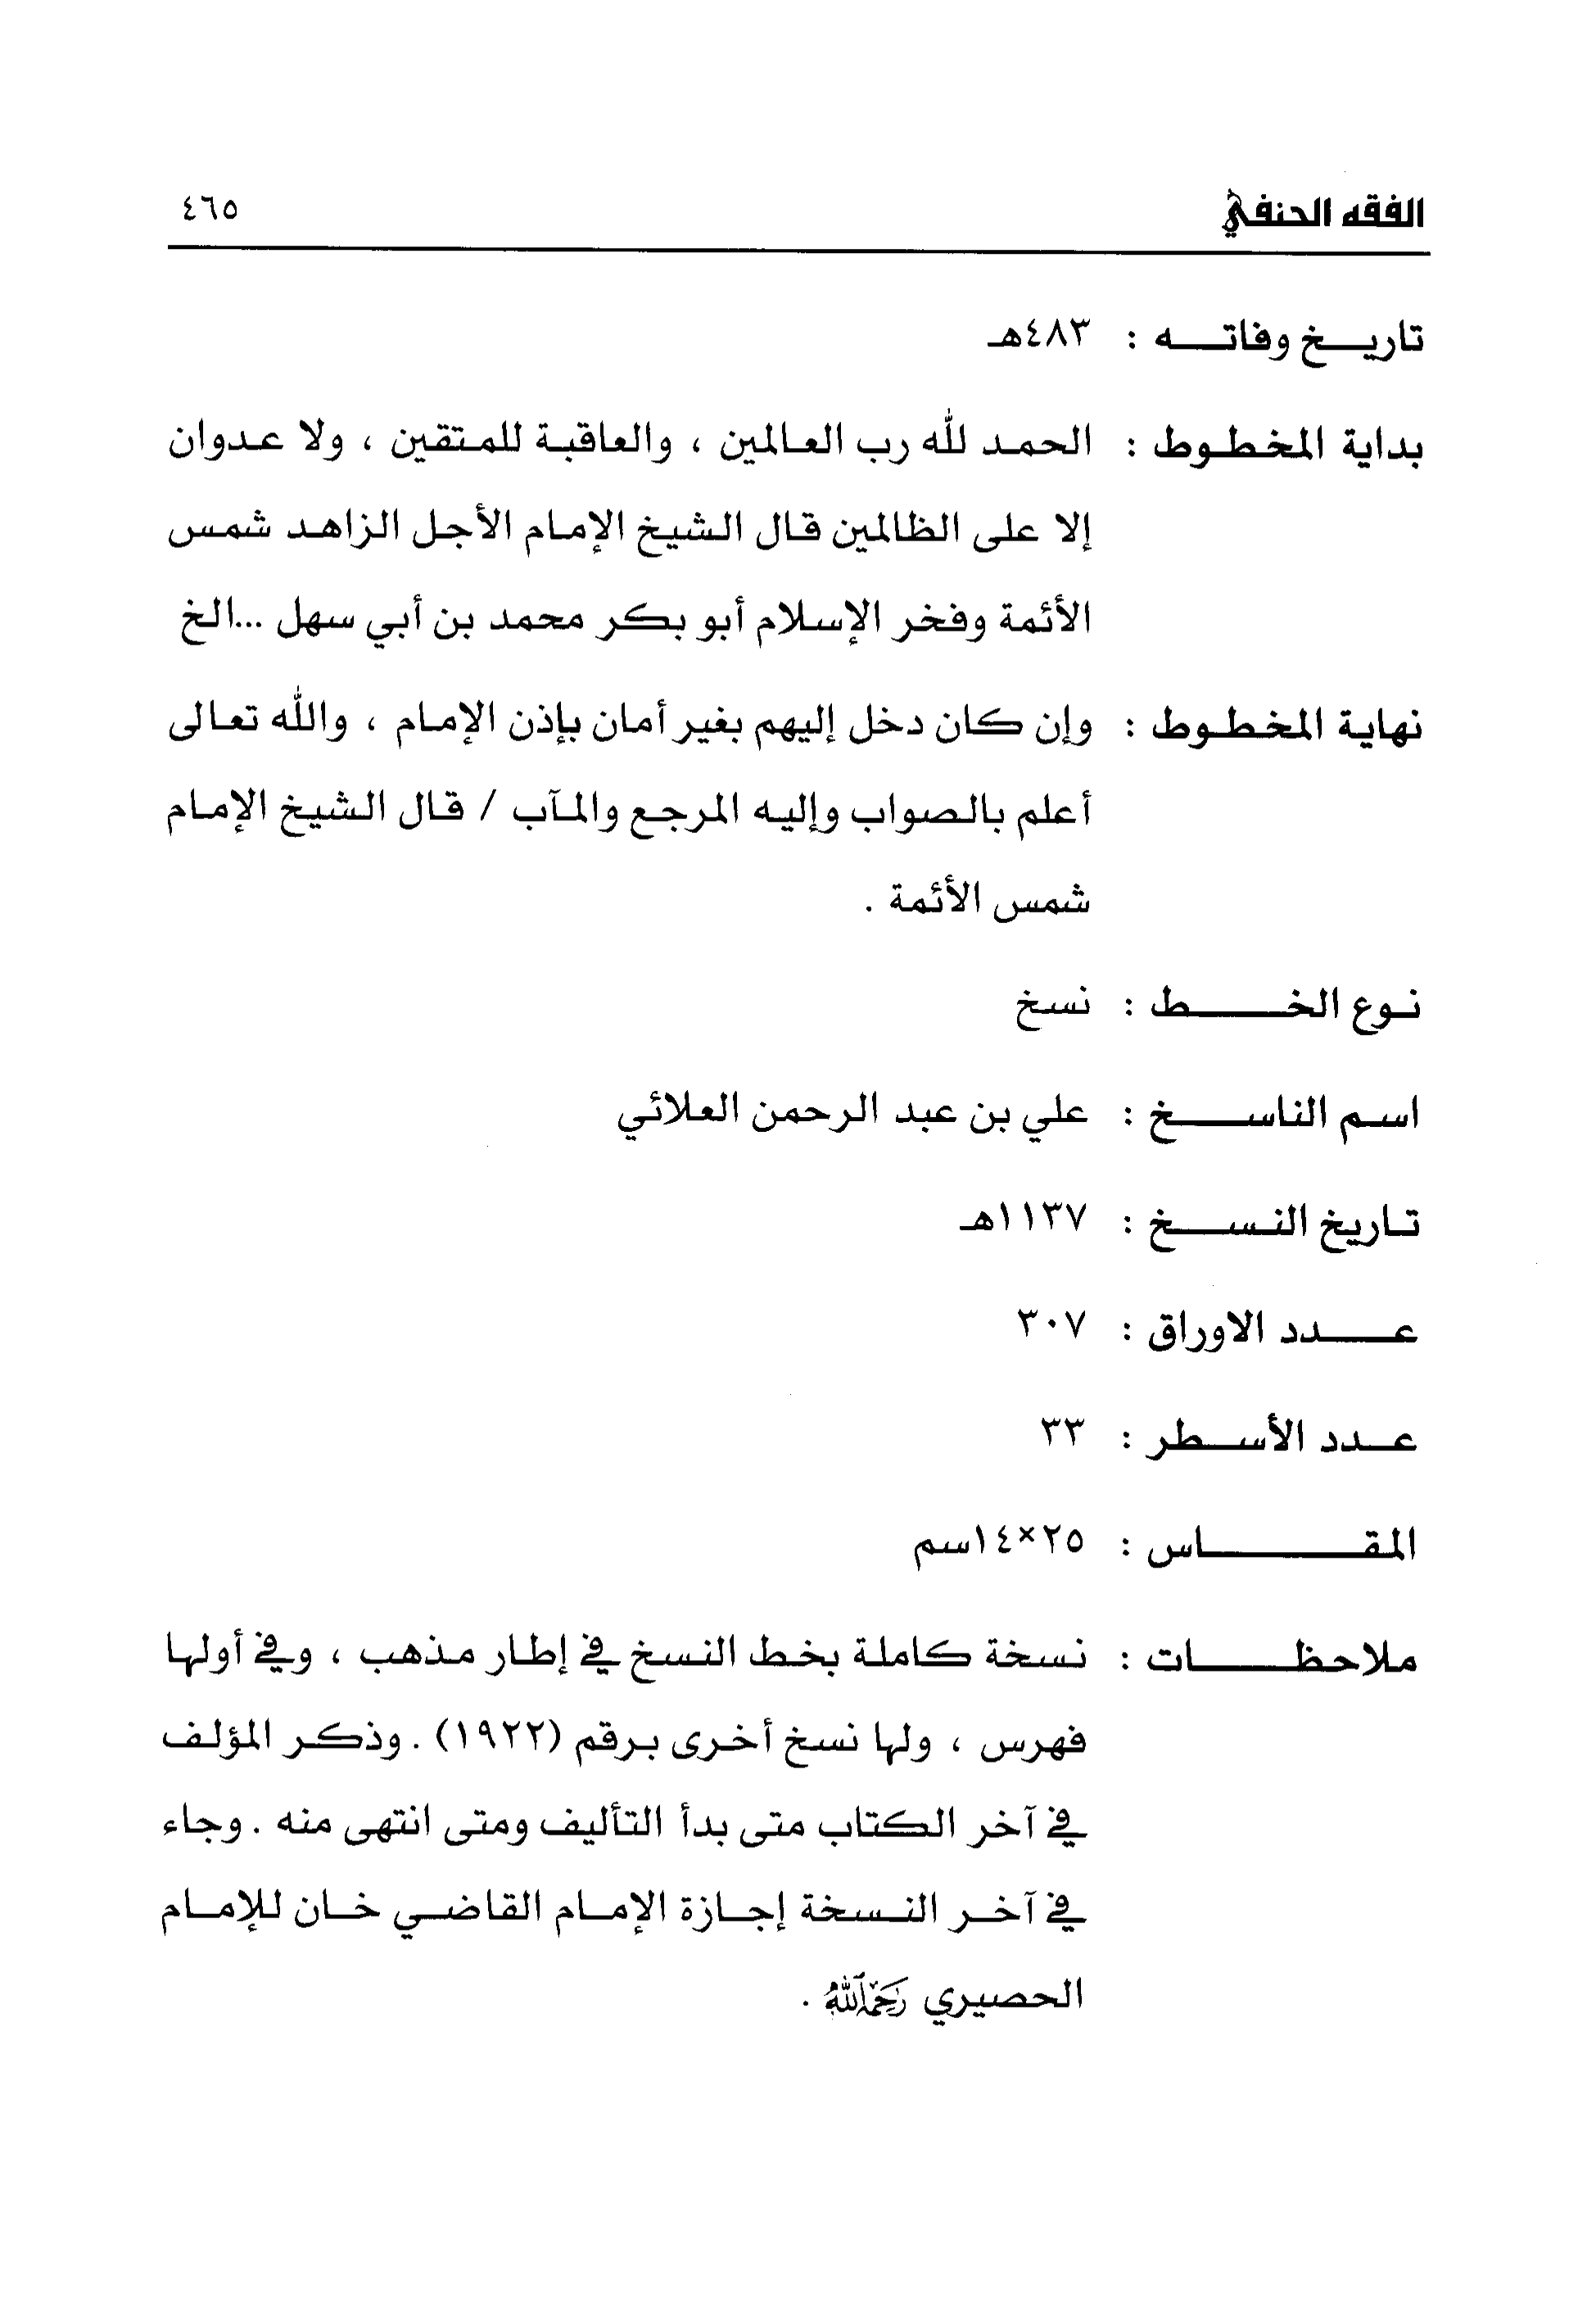 الفقه الحنفي ٤٦٥
تاريخ وفاته : ٤٨٣هـ
بداية المخطوط : الحمد لله رب العالمين ، والعاقبة للمتقين ، ولا عدوان
إلا على الظالمين قال الشيخ الإمام الأجل الزاهد شمس
الأئمة وفخر الإسلام أبو بكر محمد بن أبي سهل ...الخ
نهاية المخطوط : وإن كان دخل إليهم بغير أمان بإذن الإمام ، والله تعالى
أعلم بالصواب وإليه المرجع والمآب / قال الشيخ الإمام
شمس الأئمة .
نوع الخط : نسخ
اسم الناسخ : علي بن عبد الرحمن العلائي
تاريخ النسخ : ١١٣٧هـ
عدد الاوراق : ٣٠٧
عدد الأسطر : ٣٣
المقاس : ٢٥×١٤سم
ملاحظات : نسخة كاملة بخط النسخ في إطار مذهب ، وفي أولها
فهرس ، ولها نسخ أخرى برقم (١٩٢٢) . وذكر المؤلف
في آخر الكتاب متى بدأ التأليف ومتى انتهى منه . وجاء
في آخر النسخة إجازة الإمام القاضي خان للإمام
الحصيري رحمه الله .